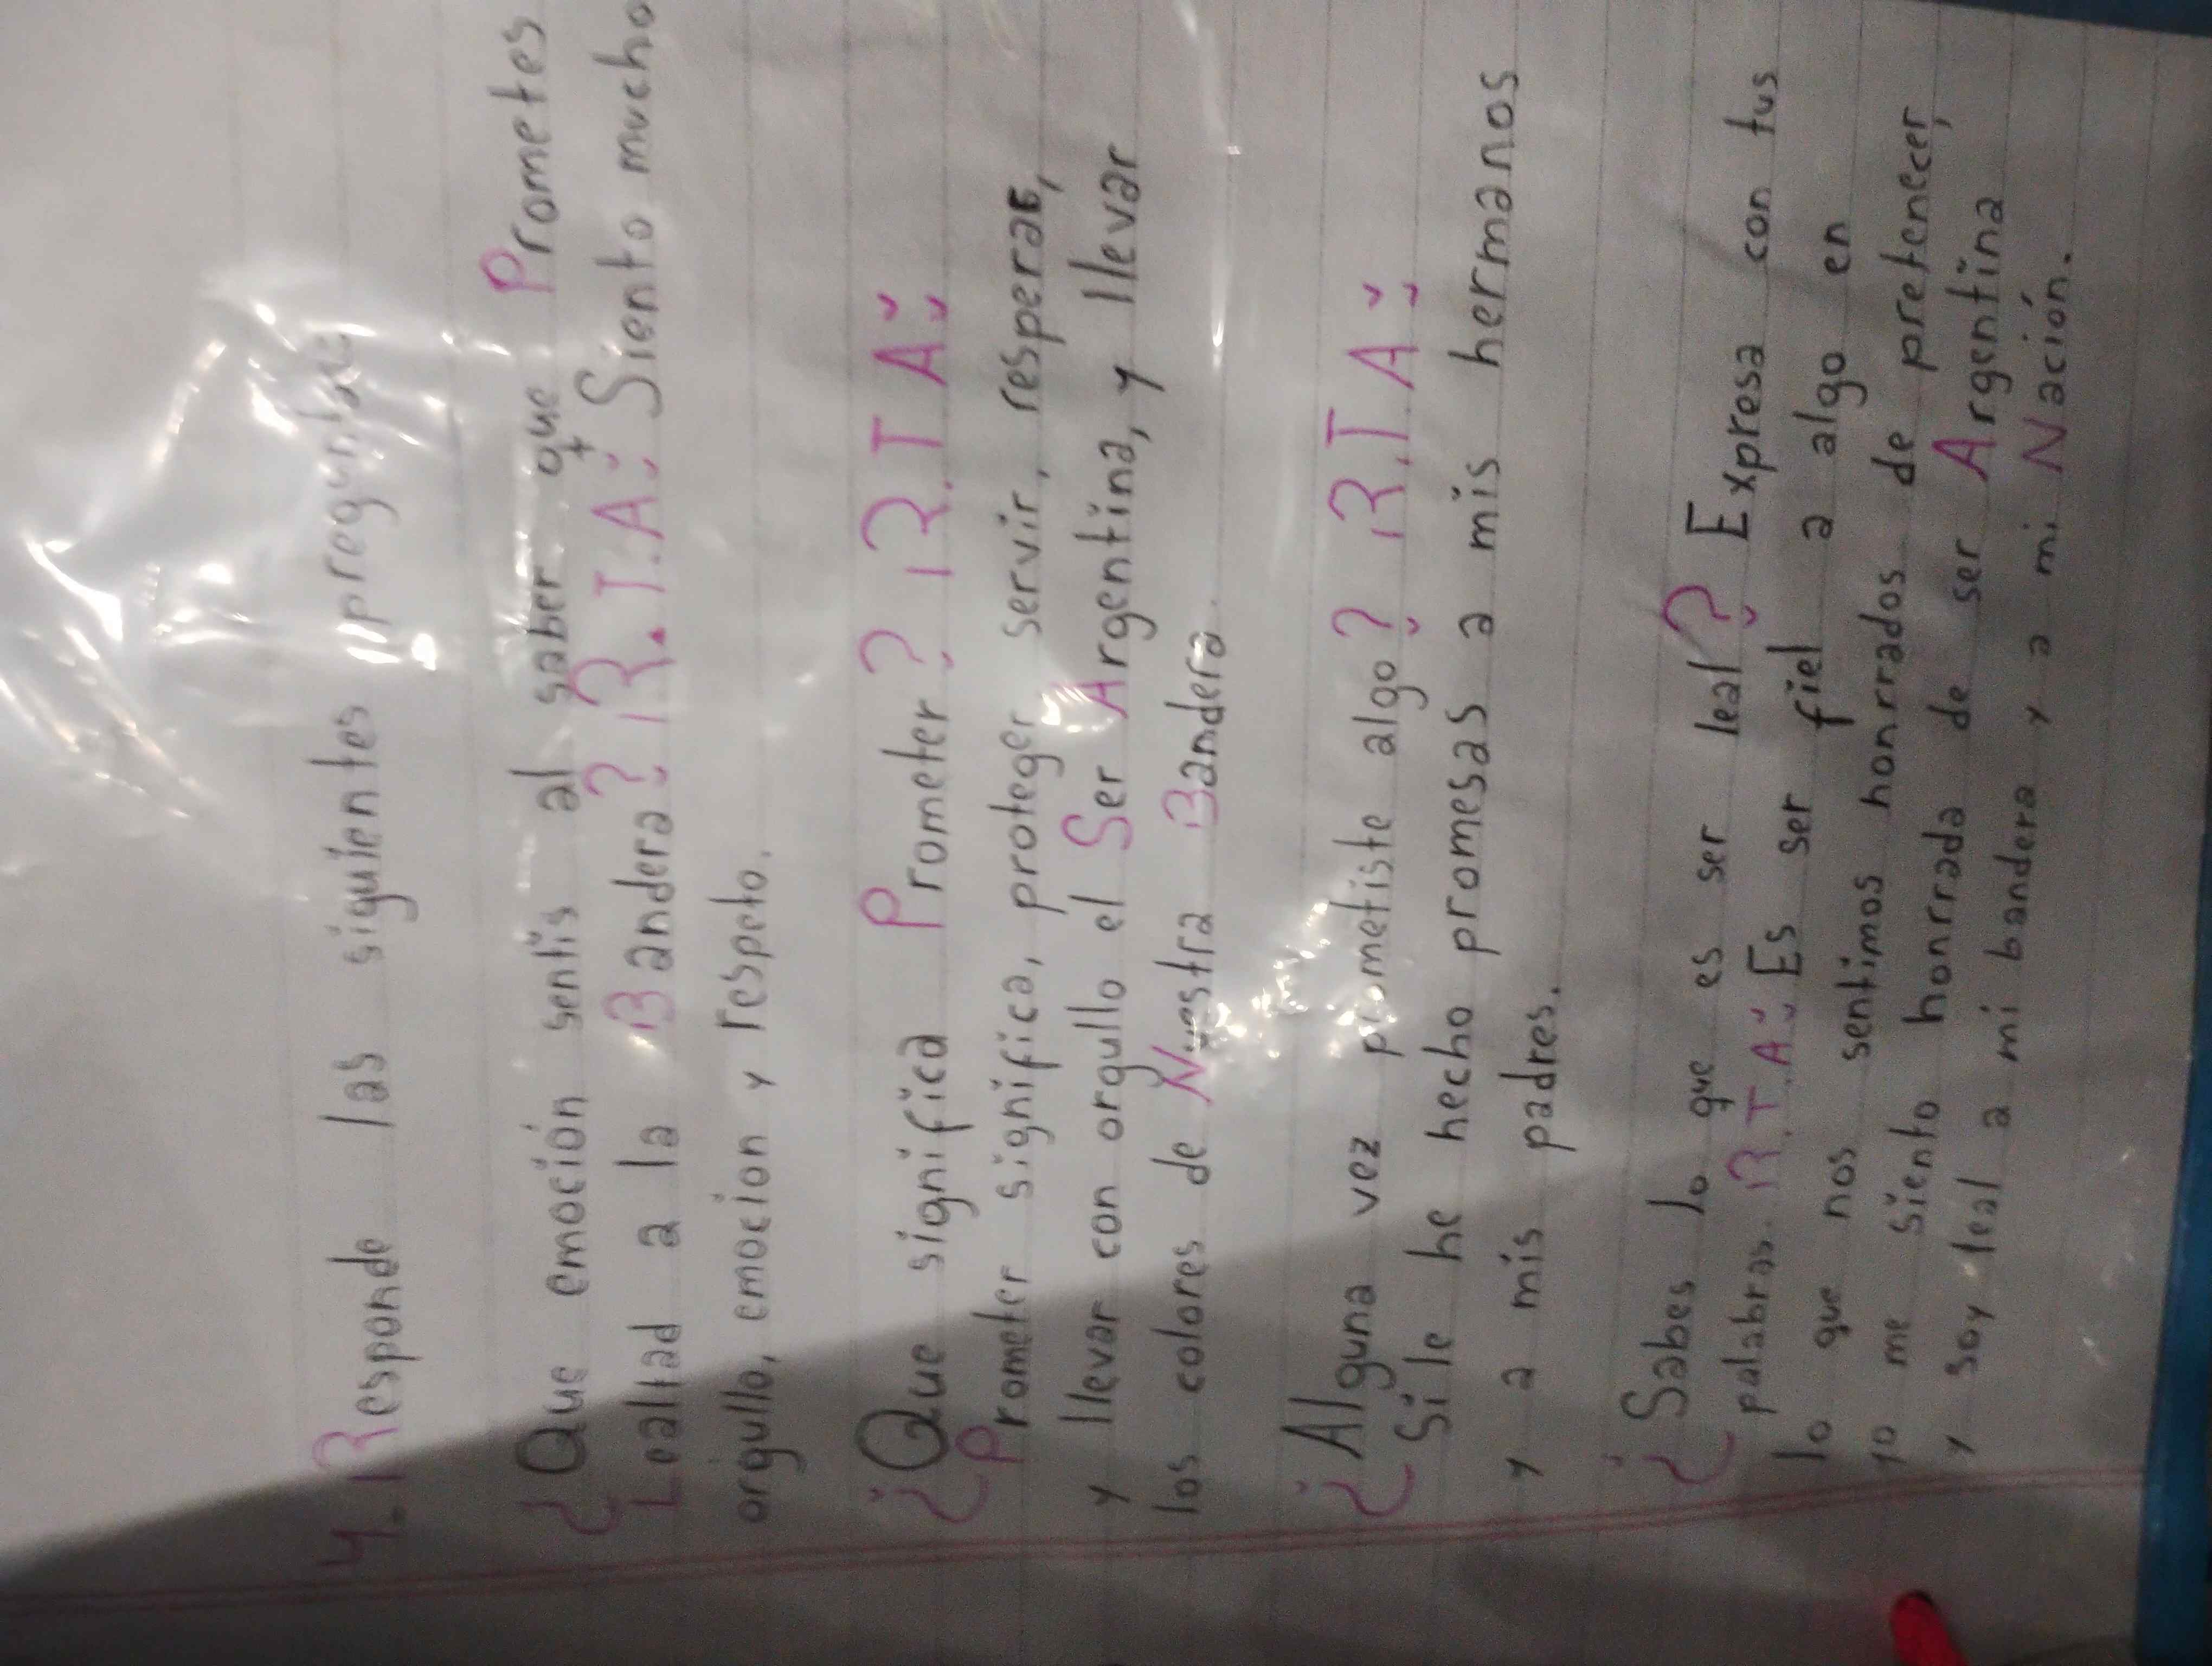 4. Responde las siguientes preguntas
¿Que emoción sentis al saber que Prometes
Lealtad a la Bandera? R.T.A: Siento mucho
orgullo, emocion y respeto.
¿Que significa Prometer? R.T A:
Prometer significa, proteger servir, resperar,
y llevar con orgullo el Ser Argentina, y llevar
los colores de Nuestra Bandera.
¿Alguna vez prometiste algo? R.T A:
Si le he hecho promesas a mis hermanos
y a mis padres.
¿Sabes lo que es ser leal? Expresa con tus
palabras. R.T.A: Es ser fiel a algo en
lo que nos sentimos honrrados de pretenecer,
yo me siento honrrada de ser Argentina
y soy leal a mi bandera y a mi Nación.